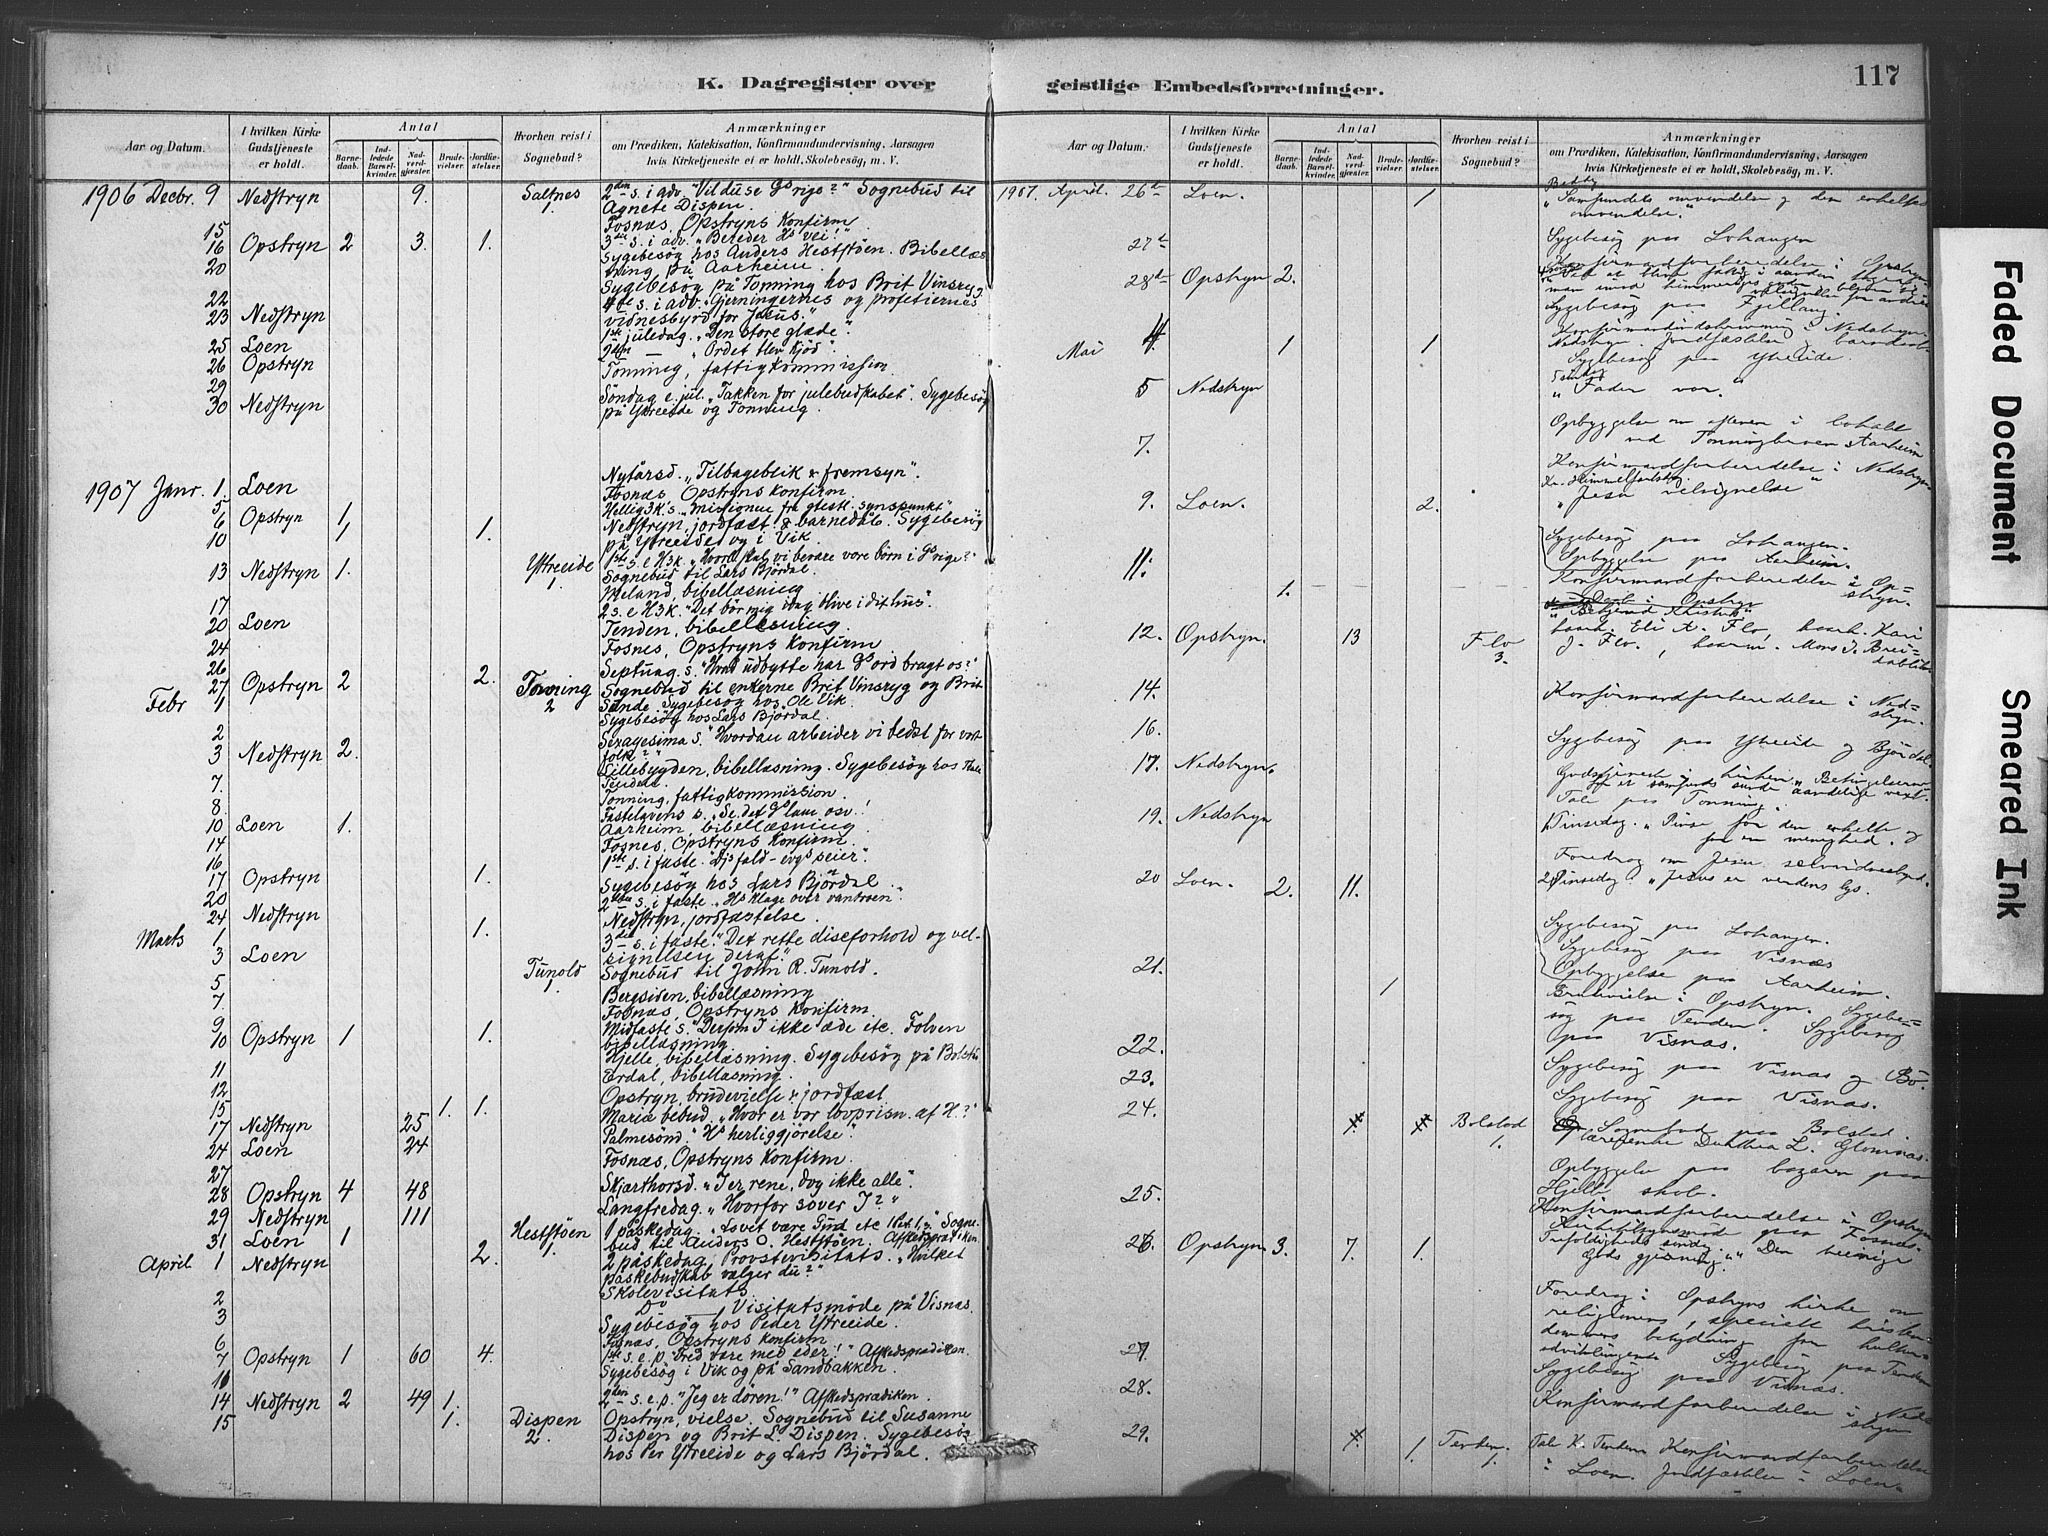 K. Dagregister over geistlige Embedsforretninger.
117
Aar og Datum.
I hvilken Kirke Gudstjeneste er holdt.
Antal
Barnedaab.
Indledede Barselkvinder.
Nadverdgjæster.
Brudevielser.
Jordfæstelser.
Hvorhen reist i Sognebud?
Anmærkninger
om Prædiken, Katekisation, Konfirmandundervisning, Aarsagen
hvis Kirketjeneste ei er holdt, Skolebesøg, m. V.
1906 Decbr. 9 Nedstryn 9. Saltnes 1. 2den s. i adv. "Vil du se Gs rige?" Sognebud til
Agnete Dispen.
15 Fosnæs, Opstryns Konfirm
16 Opstryn 2 3. 1. 3die s. i adv. "Bereder Hs vei!"
20 Sygebesög hos Anders Hestföen. Bibellæs
ning på Aarheim.
22 Sygebesög på Tonning hos Brit Vinsryg.
23 Nedstryn 4de s. i adv. "Gjerningernes og profetiernes
vidnesbyrd for Jesus."
25 Loen 1ste juledag. "Den store glæde".
26 Opstryn 2den — "Ordet blev kjöd".
29 Tonning, fattigkommission.
30 Nedstryn Söndag e. jul. "Takken for julebudskabet". Sygebesög
på Ytreeide og Tonning.
1907 Janr. 1. Loen Nytårsd. "Tilbageblik & fremsyn".
5 Fosnæs, Opstryns Konfirm.
6 Opstryn 1 Hellig 3 K. s. "Missionen fra gtestl. synspunkt"
10 1 1. Nedstryn, jordfæst & barnedåb. Sygebesög
på Ytreeide og i Vik
13 Nedstryn 1. Ytreeide 1. 1ste s. e H3k. "Hvord. skal vi bevare vore börn i Gs rige?"
Sognebud til Lars Björdal.
17 Meland, bibellæsning
20 Loen 2 s. e H3K. "Det bör mig idag blive i dit hus".
24 Tenden, bibellæsning.
26 Fosnes, Opstryns Konfirm
27 Opstryn 2 2. Septuag. s. "Hvad udbytte har Gs ord bragt os?"
Febr 1 Tonning 2 Sognebud til enkerne Brit Vinsryg og Brit
Sunde. Sygebesög hos Ole Vik.
2 Sygebesög hos Lars Björdal.
3 Nedstryn 2. Sexagesima s. "Hvordan arbeider vi bedst for vort
folk?"
7. Lillebygden, bibellæsning. Sygebesög hos
Tendede.
8. Tonning, fattigkommission.
10 Loen 1. Fastelavens s. "Se det Gs lam osv!
14 Aarheim, bibellæsning.
16 Fosnes, Opstryns Konfirm.
17 Opstryn 1. 1ste s. i faste.
20 Sygebesög hos Lars Björdal.
24 Nedstryn 2den s. i faste. "Hs klage over vantroen."
Marts 1 1. Nedstryn, jordfæstelse.
3 Loen 3die s. i faste. "Det rette discforhold og vel-
signelsen deraf."
5 Tunold 1. Sognebud til John R. Tunold.
7 Bergsiden, bibellæsning
9 Fosnæs, Opstryns Konfirm.
10 Opstryn 1 1. Midfaste s. "Dersom I ikke æde etc. Folven
bibellæsning
11 Hjelle, bibellæsning. Sygebesög på Bolstad
12 Erdal, bibellæsning.
15 1. 1. Opstryn, brudevielse & jordfæst
17 Nedstryn 25 Mariæ bebud. "Hvor er vor lovprisn. af H?"
24 Loen 24 Palmesönd. "Hs herliggjörelse".
27 Fosnæs, Opstryns Konfirm.
28 Opstryn 4 48 Skjærthorsd. "I er rene, dog ikke alle".
29 Nedstryn 111 Langfredag. "Hvorfor sover I?"
31 Loen 1 Hestföen 1. 1 påskedag. "Lovet være Gud etc 1 Pet. 1,3." Sogne-
bud til Anders O. Hestföen. Afskedsprædiken.
April 1 Nedstryn 2. 2 påskedag. Provstevisitats. "Hvilket
påskebudskab vælger du?"
2 Skolevisitats.
3 Do — , Visitatsmöde på Visnæs.
Sygebesög hos Peder Ytreeide.
6 Fosnæs, Opstryns Konfirm
7 Opstryn 1 60 4. 1ste s. e. p. "Fred være med eder!" Afskedsprædiken.
10 Sygebesög i Vik og på Sandbakken.
14 Nedstryn 2 49 1. 2den s. e. p. "Jeg er dören!" Afskedsprædiken.
15 1. Dispen 2. Opstryn, vielse. Sognebud til Susanne
Dispen og Brit L. Dispen. Sygebesög
hos Per Ytreeide og Lars Björdal.
Aar og Datum.
I hvilken Kirke Gudstjeneste er holdt.
Antal
Barnedaab.
Indledede Barselkvinder.
Nadverdgjæster.
Brudevielser.
Jordfæstelser.
Hvorhen reist i Sognebud?
Anmærkninger
om Prædiken, Katekisation, Konfirmandundervisning, Aarsagen
hvis Kirketjeneste ei er holdt, Skolebesøg, m. V.
1907. April. 26de Loen. 1 Bededag
"Samfundets omvendelse og den enkeltes
omvendelse."
27de Sygebesög paa Lohangen
Konfirmandforberedelse i Opstryn
28de Opstryn 2.
Sygebesög paa Fjelland.
Mai 4. 1 1 Konfirmandundervisning i Nedstryn.
Nedstryn. Jordfæstelse, barnedaab
Sygebesög paa Ytreeide.
5 Nedstryn 5 söndag
"Fader vor."
7. Opbyggelse om aftenen i lokalet
ved Tonning Aarheim
Konfirmandforberedelse i Nedstryn
9. Loen. 2. Kr. Himmelfartsdag
"Jesu velsignelse"
11. Sygebesög paa Lohangen.
Opbyggelse paa Aarheim.
1. Konfirmandforberedelse i Op-
stryn.
12. Opstryn. 13 Flo 3. Eli A. Flo, Kari
J. Flo, Mons J. Brei-
14. Konfirmandforberedelse i Ned-
stryn.
16. Sygebesög paa Ytreeide og Björdal.
17. Nedstryn. Gudstjeneste i kirken. "Betingelserne
for samfunds sunde aandelige vext.
Tale paa Tonning.
19. Nedstryn 1 Pinsedag. "Pinse for den enkelte og
for en menighed."
Foredrag om Jesu selvvidnesbyrd.
20 Loen. 2. 11. 2 Pinsedag. "Jesus er verdens lys.
Sygebesög paa Lohangen.
Sygebesög paa Visnæs
21. 1 Opbyggelse paa Aarheim.
Brudevielse i Opstryn. Sygebe-
sög paa Tenden. Sygebesög
22. paa Visnæs.
23. Sygebesög paa Visnæs og Bö.
24. Sygebesög paa Visnæs.
Bolstad 1. Sognebud paa Bolstad.
lærerenke Dorthea L. Glomnæs.
25. Opbyggelse paa bazaren paa
Hjelle skole.
Konfirmandforberedelse i Opstryn
paa Fosnæs.
26. Opstryn 3. 7. 1. Trefoldigheds söndag.
Guds gjerning. "Den treenige
Foredrag i Opstryns kirke om
religionens, specielt kristen-
dommens betydning for kultur-
27. udviklingen. Sygebesög paa Tenden
Sygebesög paa Visnæs.
28. Konfirmandforberedelse i Ned-
stryn
29. 1. Tenden. 1. Konfirmandforberedelse
i Loen. Jordfæstelse i Loen.
Faded Document
Smeared Ink